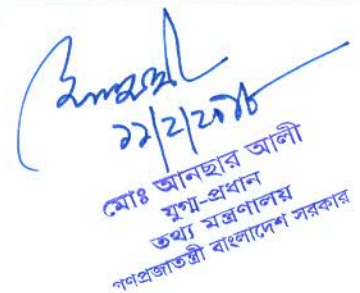 মোঃ আনছার আলী
যুগ্ম-প্রধান
তথ্য মন্ত্রণালয়
গণপ্রজাতন্ত্রী বাংলাদেশ সরকার